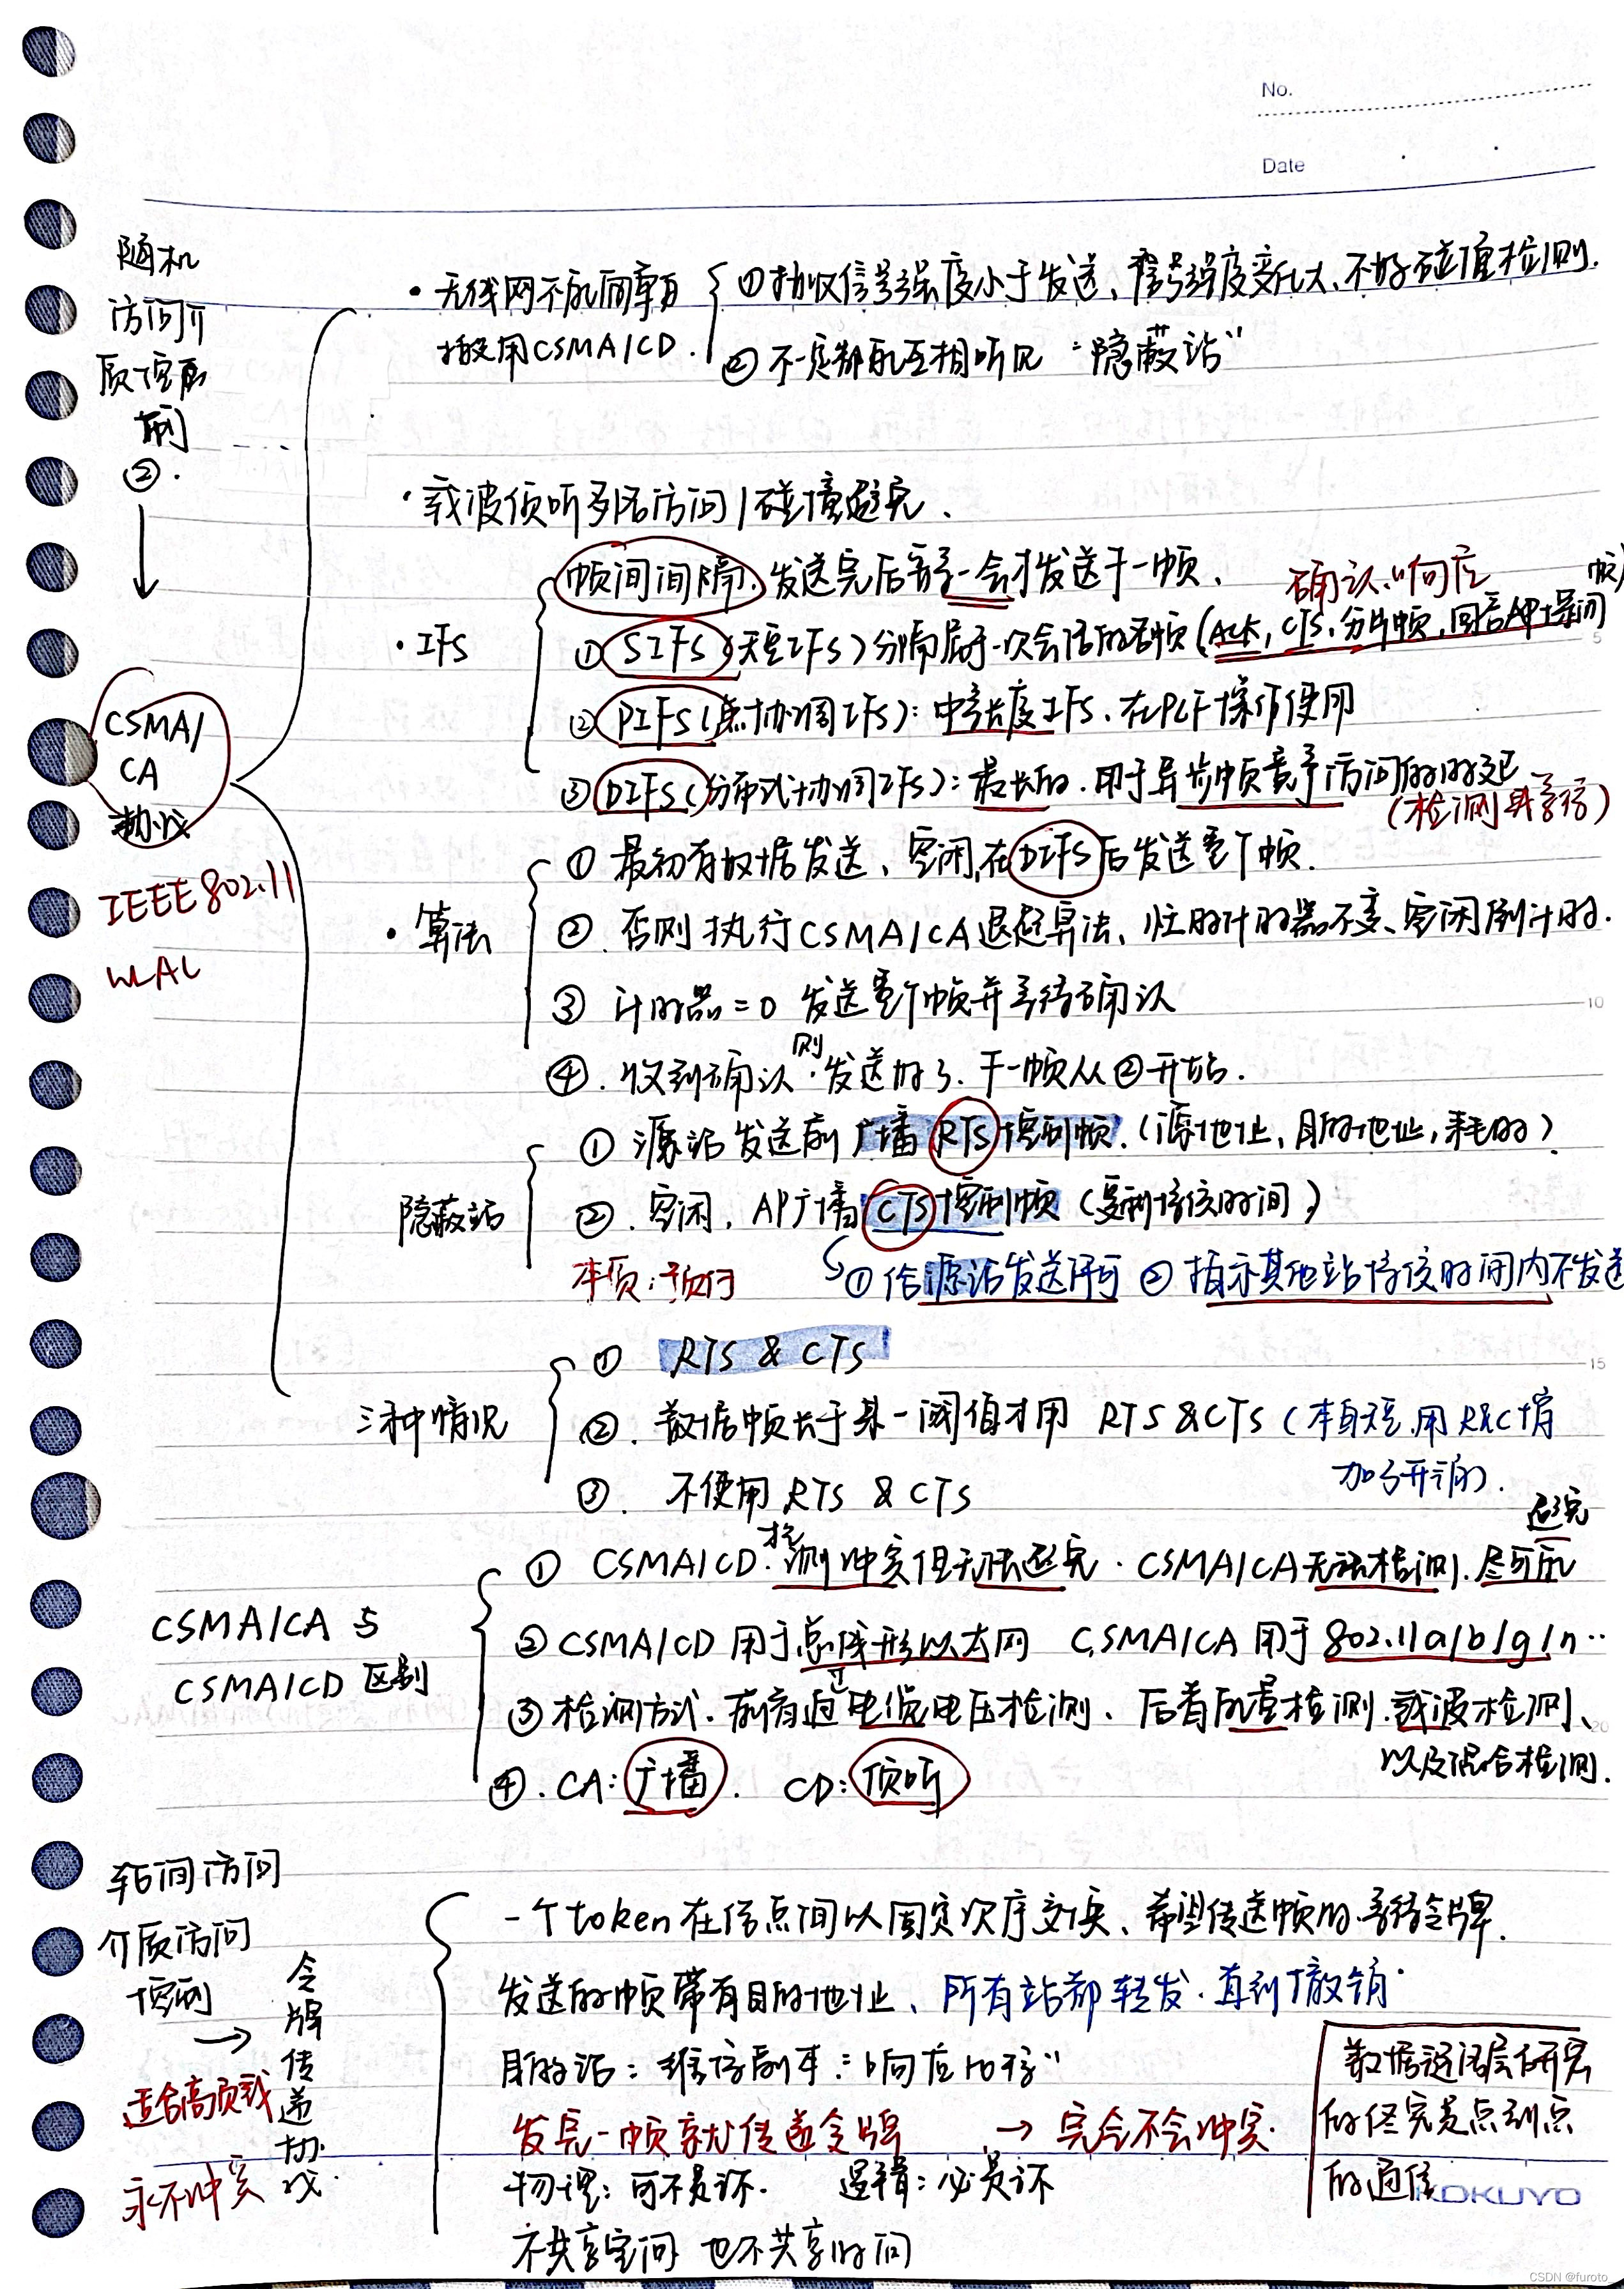 No.
Date
随机
访问介
质控
制
②.
CSMA/
CA
协议
IEEE 802.11
WLAN
· 无线网不能简单
搬用CSMA/CD.
① 接收信号强度小于发送、信号强度变化大、不好碰撞检测.
② 不一定都能互相听见 "隐蔽站"
· 载波侦听多路访问/碰撞避免、
· IFS
帧间间隔. 发送完后等一会才发送下一帧、
确认、响应
① SIFS (短IFS) 分隔属于一次会话的各帧 (ACK, CTS, 分片帧, 回答AP探询
帧)
② PIFS (点协调IFS): 中等长度IFS、在PCF操作使用
③ DIFS (分布式协调IFS): 最长的. 用于异步帧竞争访问的时延
(检测到等待)
· 算法
① 最初有数据发送、空闲,在DIFS后发送整个帧.
② 否则执行CSMA/CA退避算法、忙时计时器不变、空闲倒计时.
③ 计时器=0 发送整个帧并等待确认
④. 收到确认则发送好了、下一帧从②开始.
隐蔽站
① 源站发送前广播RTS控制帧. (源地址, 目的地址, 耗时)
②. 空闲, AP广播CTS控制帧 (复制通信时间)
本质: 预约
① 给源站发送许可 ② 指示其他站通信时间内不发送
三种情况
① RTS & CTS
②. 数据帧长于某一阈值才用 RTS & CTS (本身短,用R&C增
加了开销).
③. 不使用 RTS & CTS
CSMA/CA 与
CSMA/CD 区别
① CSMA/CD. 检测冲突但无法避免. CSMA/CA 无法检测. 尽可能
避免
② CSMA/CD 用于总线形以太网 CSMA/CA 用于 802.11a/b/g/n··
③ 检测方式. 前者通过电缆电压检测、后者能量检测.载波检测、
以及混合检测.
④. CA: 广播. CD: 侦听
轮询访问
介质访问
控制
→
令牌传递协议
适合高负载
永不冲突
一个token在结点间以固定次序交换、希望传送帧时.等待令牌.
发送的帧带有目的地址、所有站都转发.直到撤销.
目的站:
发完一帧就传递令牌 → 完全不会冲突.
物理: 可不是环. 逻辑: 必是环
不共享空间 也不共享时间
数据链路层研究
的终究是点到点
的通信
KOKUYO
CSDN @furoto